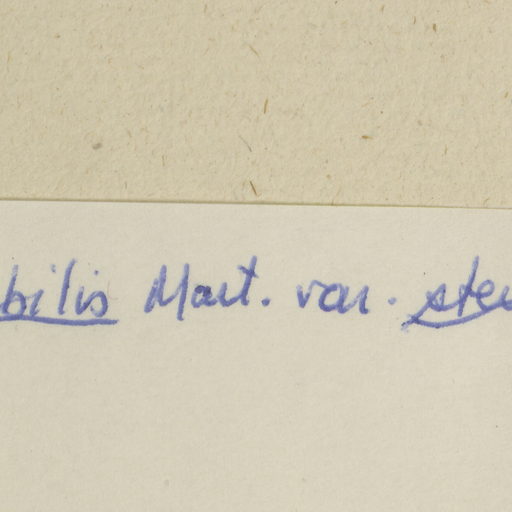 bilis Mart. var. ste